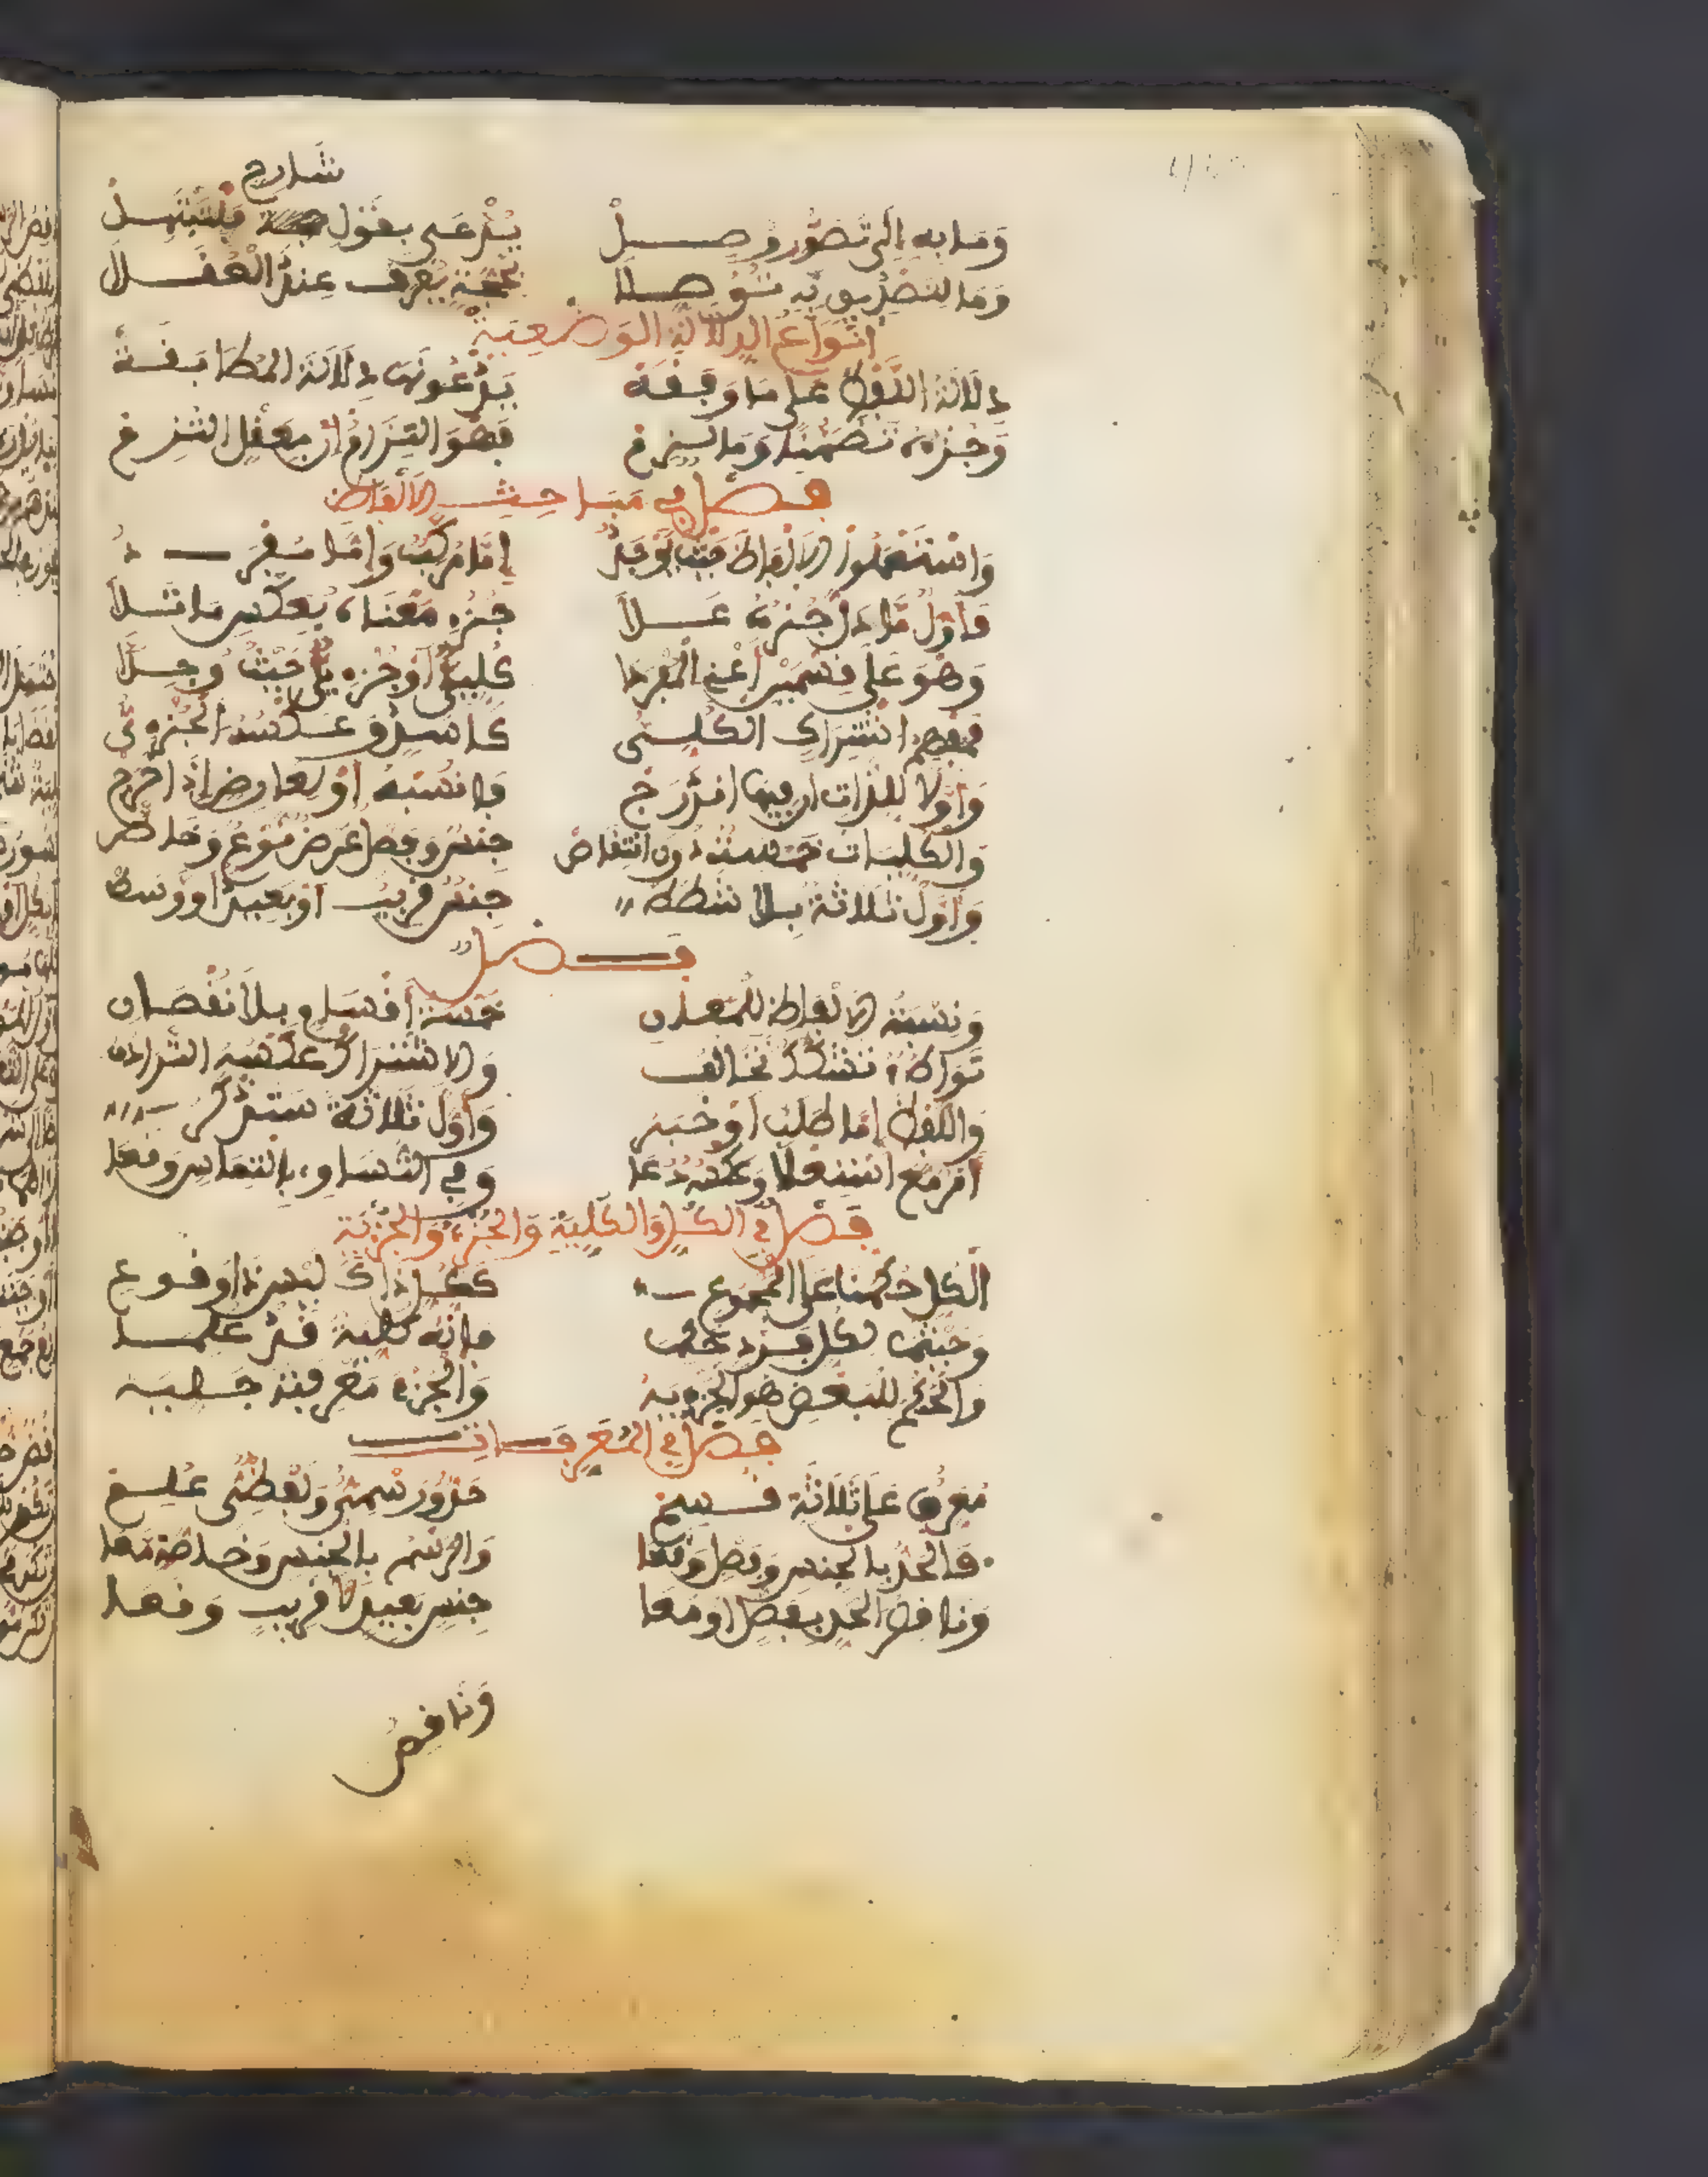 شارح
وما به إلى تصور وصل يدعى بقول فلتبتهل
وما لتصديق به توصلا بحجة يعرف عند العقلا
أنواع الدلالة الوضعية
دلالة اللفظ على ما وافقه يدعونها دلالة المطابقة
وجزئه تضمنا وما لزم فهو التزام إن بعقل التزم
فصل في مباحث الألفاظ
واستعملوا الألفاظ حيث يوجد إما مركب وإما مفرد
فأول ما دل جزؤه على جزء معناه بعكس ما تلا
وهو على قسمين أعني المفردا كلي أو جزئي حيث وجدا
فمفهم اشتراك الكلي كأسد وعكسه الجزئي
وأولا للذات إن فيها اندرج فانسبه أو لعارض إذا خرج
والكليات خمسة دون انتقاص جنس وفصل عرض نوع وخاص
وأول ثلاثة بلا شطط جنس قريب أو بعيد أو وسط
فصل
ونسبة الألفاظ للمعان خمسة أقسام بلا نقصان
تواطؤ تشكك تخالف والاشتراك عكسه الترادف
واللفظ إما طلب أو خبر وأول ثلاثة ستذكر
أمر مع استعلا وعكسه دعا وفي التساوي بالتماس وقعا
فصل في الكل والكلية والجزء والجزئية
الكل حكمنا على المجموع ككل ذاك ليس ذا وقوع
وحيثما لكل فرد حكما فإنه كلية قد علما
والحكم للبعض هو الجزئية والجزء معرفته جليه
فصل في المعرفات
معرف على ثلاثة قسم حد ورسمي ولفظي علم
فالحد بالجنس وفصل وقعا والرسم بالجنس وخاصة معا
وناقص الحد بفصل أو معا جنس بعيد لا قريب وقعا
وناقص